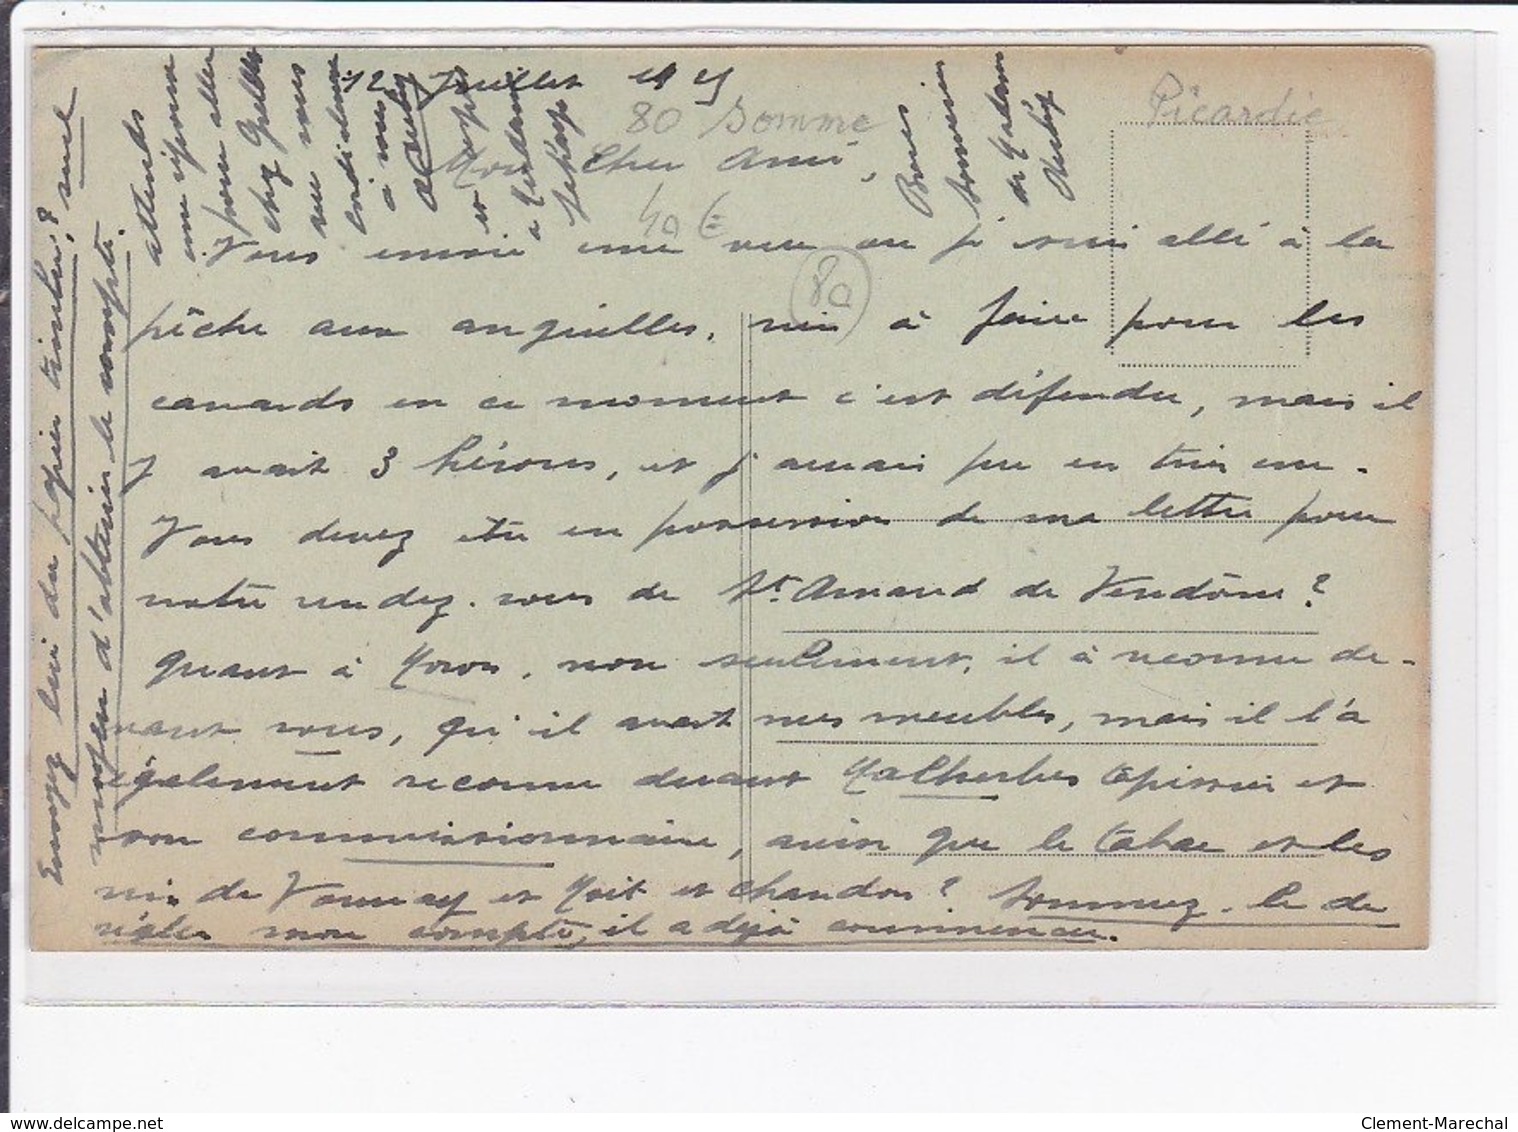 12 Juillet 19
80 Somme
Picardie
Mon Cher Ami,
40 €
80
Vous envoie une vue ou je suis allé à la
pêche aux anguilles, rien à faire pour les
canards en ce moment c'est défendu, mais il
y avait 3 hérons, et j'aurais pu en tuer un.
Vous devez être en possession de ma lettre pour
notre rendez-vous de St. Amand de Vendôme?
Quant à, non seulement, il à reconnu de-
vant vous, qu'il avait mes meubles, mais il l'a
également reconnu devant Malherbes tapissier et
son commissionnaire, ainsi que le tabac et les
vins de Vouvray et Moët et chandon? Sommez-le de
régler mon compte, il a déjà commencer.
Envoyez lui du papier timbré? seul
moyen d'obtenir le compte.
attends
une réponse
pour aller
chez
à vous
et
à
Bons
Souvenirs
de Madame